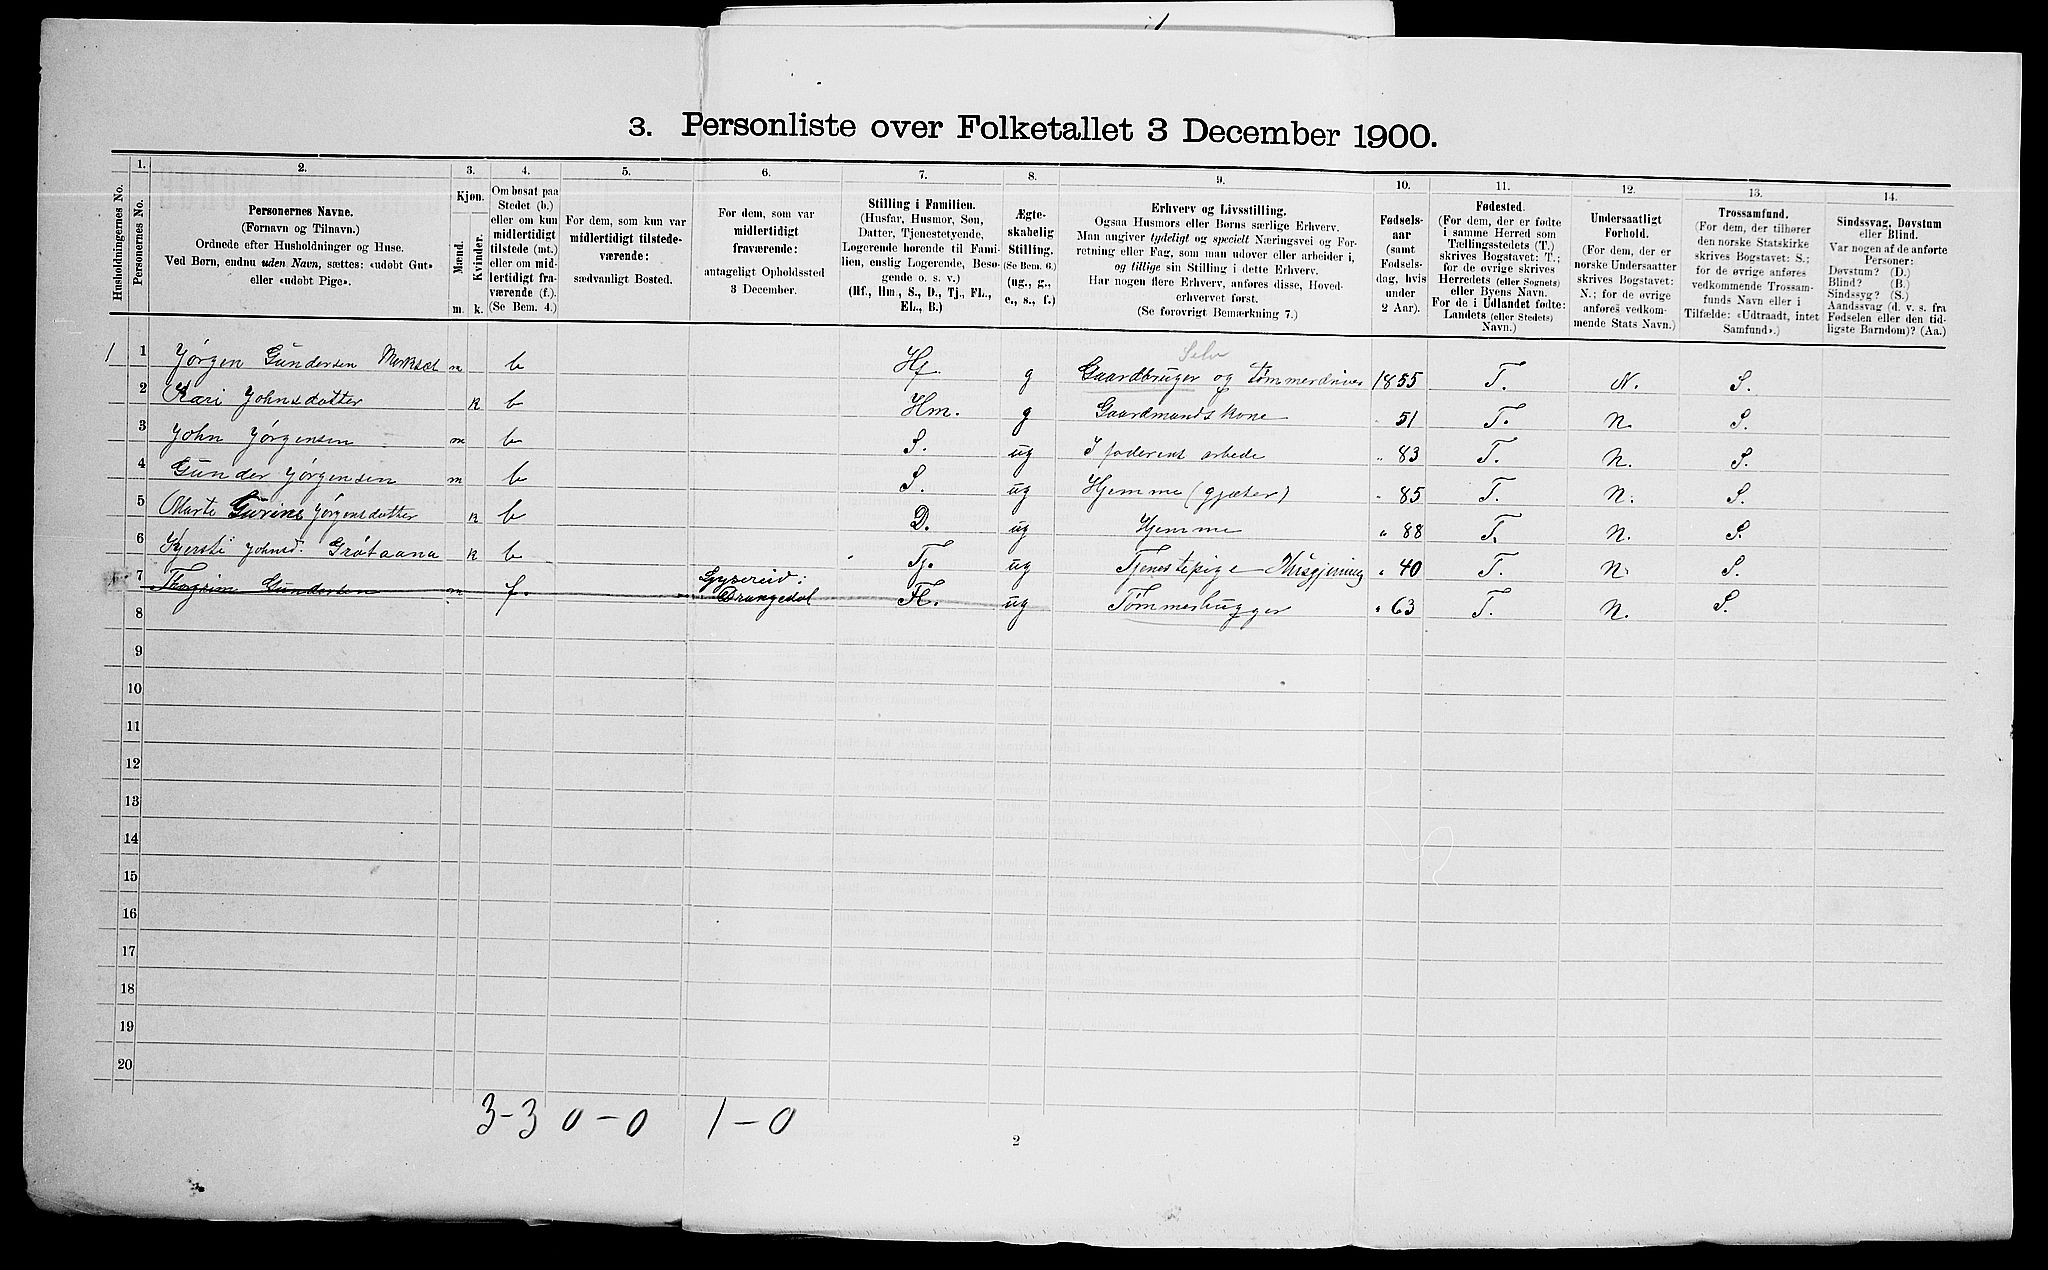 3. Personliste over Folketallet 3 December 1900.
1. 2. 3. 4. 5. 6. 7. 8. 9. 10. 11. 12. 13. 14.
Husholdningernes No.
Personernes No.
Personernes Navne.
(Fornavn og Tilnavn.)
Ordnede efter Husholdninger og Huse.
Ved Børn, endnu uden Navn, sættes: «udøbt Gut»
eller «udøbt Pige».
Kjøn.
Mænd.
Kvinder.
m. k.
Om bosat paa
Stedet (b.)
eller om kun
midlertidigt
tilstede (mt.)
eller om mid-
lertidigt fra-
værende (f.).
(Se Bem. 4.)
For dem, som kun var
midlertidigt tilstede-
værende:
sædvanligt Bosted.
For dem, som var
midlertidigt
fraværende:
antageligt Opholdssted
3 December.
Stilling i Familien.
(Husfar, Husmor, Søn,
Datter, Tjenestetyende,
Logerende hørende til Fami-
lien, enslig Logerende, Besø-
gende o. s. v.)
(Hf., Hm., S., D., Tj., FL.,
EL., B.)
Ægte-
skabelig
Stilling.
(Se Bem. 6.)
(ug., g.,
e., s., f.)
Erhverv og Livsstilling.
Ogsaa Husmors eller Børns særlige Erhverv.
Man angiver tydeligt og specielt Næringsvei og For-
retning eller Fag, som man udover eller arbeider i,
og tillige sin Stilling i dette Erhverv.
Har nogen flere Erhverv, anføres disse, Hoved-
erhvervet først.
(Se forøvrigt Bemærkning 7.)
Fødsels-
aar
(samt
Fødsels-
dag, hvis
under
2 Aar).
Fødested.
(For dem, der er fødte
i samme Herred som
Tællingsstedets (T.)
skrives Bogstavet: T.;
for de øvrige skrives
Herredets (eller Sognets)
eller Byens Navn.
For de i Udlandet fødte:
Landets (eller Stedets)
Navn.)
Undersaatligt
Forhold.
(For dem, der er
norske Undersaatter
skrives Bogstavet:
N.; for de øvrige
anføres vedkom-
mende Stats Navn.)
Trossamfund.
(For dem, der tilhører
den norske Statskirke
skrives Bogstavet: S.;
for de øvrige anføres
vedkommende Trossam-
funds Navn eller i
Tilfælde: «Udtraadt, intet
Samfund».)
Sindssvag, Døvstum
eller Blind.
Var nogen af de anførte
Personer:
Døvstum? (D.)
Blind? (B.)
Sindssyg? (S.)
Aandssvag (d. v. s. fra
Fødselen eller den tid-
ligste Barndom)? (Aa.)
Selv
1 1 Jørgen Gundersen m b Hf. g Gaardbruger og tømmerdriver 1855 T. N. S.
2 Kari Johnsdatter k b Hm. g Gaardmandskone " 51 T. N. S.
3 John Jørgensen m b S. ug I faderens arbede " 83 T. N. S.
4 Gunder Jørgensen m b S. ug Hjemme (gjæter) " 85 T. N. S.
5 Marte Gurine Jørgensdatter k b D. ug Hjemme " 88 T. N. S.
6 Kjersti Johnsd. Grøtaana k b Tj. ug Tjenestepige " 40 T. N. S.
7 Gundersen m f. Drangedal Fl. ug Tømmerhugger " 63 T. N. S.
8
9
10
11
12
13
14
15
16
17
18
19
20
3-3 0-0 1-0
2